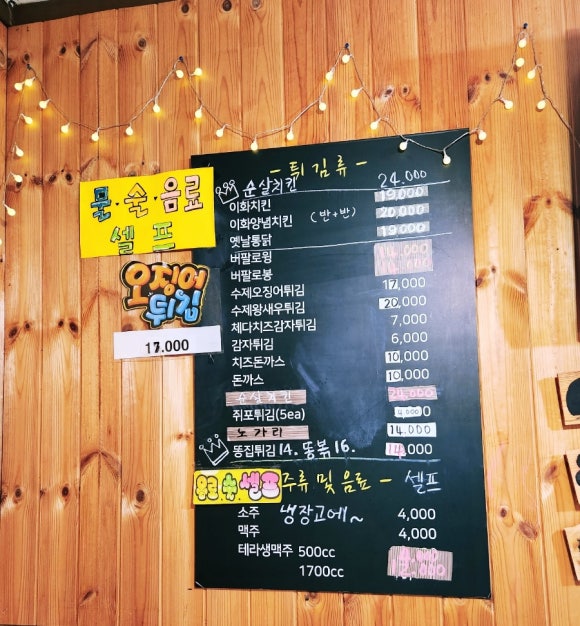 물·술·음료
셀프
오징어
튀김
17.000
- 튀김류 -
순살치킨 24.000
이화치킨 19,000
이화양념치킨 (반+반) 20,000
옛날통닭 19,000
버팔로윙 14,000
버팔로봉
수제오징어튀김 17,000
수제왕새우튀김 20,000
체다치즈감자튀김 7,000
감자튀김 6,000
치즈돈까스 10,000
돈까스 10,000
순살치킨 24,000
쥐포튀김(5ea)
노가리 14,000
똥집튀김 14. 똥볶 16. 14,000
음료.수.셀프 주류 및 음료 - 셀프
소주 냉장고에~ 4,000
맥주 4,000
테라생맥주 500cc
1700cc 12,000